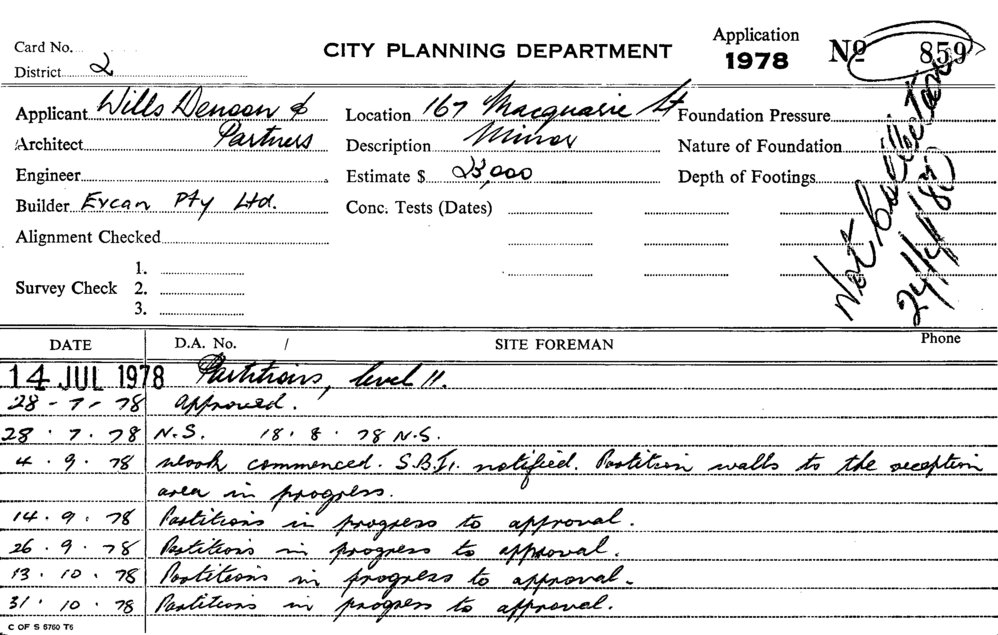 Card No.
District 2
CITY PLANNING DEPARTMENT
Application
1978
No 859
Applicant Wills Denoon &
Architect Partners
Engineer
Builder Excan Pty Ltd.
Alignment Checked
Survey Check 1.
2.
3.
Location 167 Macquarie St
Description Minor
Estimate $ 23,000
Conc. Tests (Dates)
Foundation Pressure
Nature of Foundation
Depth of Footings
Not
24/4/
DATE D.A. No. / SITE FOREMAN Phone
14 JUL 1978 Partitions, level 11.
28 - 7 - 78 Approved.
28 . 7 . 78 N.S. 18 . 8 . 78 N.S.
4 . 9 . 78 Work commenced. S.B.I. notified. Partition walls to the reception
area in progress.
14 . 9 . 78 Partitions in progress to approval.
26 . 9 . 78 Partitions in progress to approval.
13 . 10 . 78 Partitions in progress to approval.
31 . 10 . 78 Partitions in progress to approval.
C OF S 5760 T6